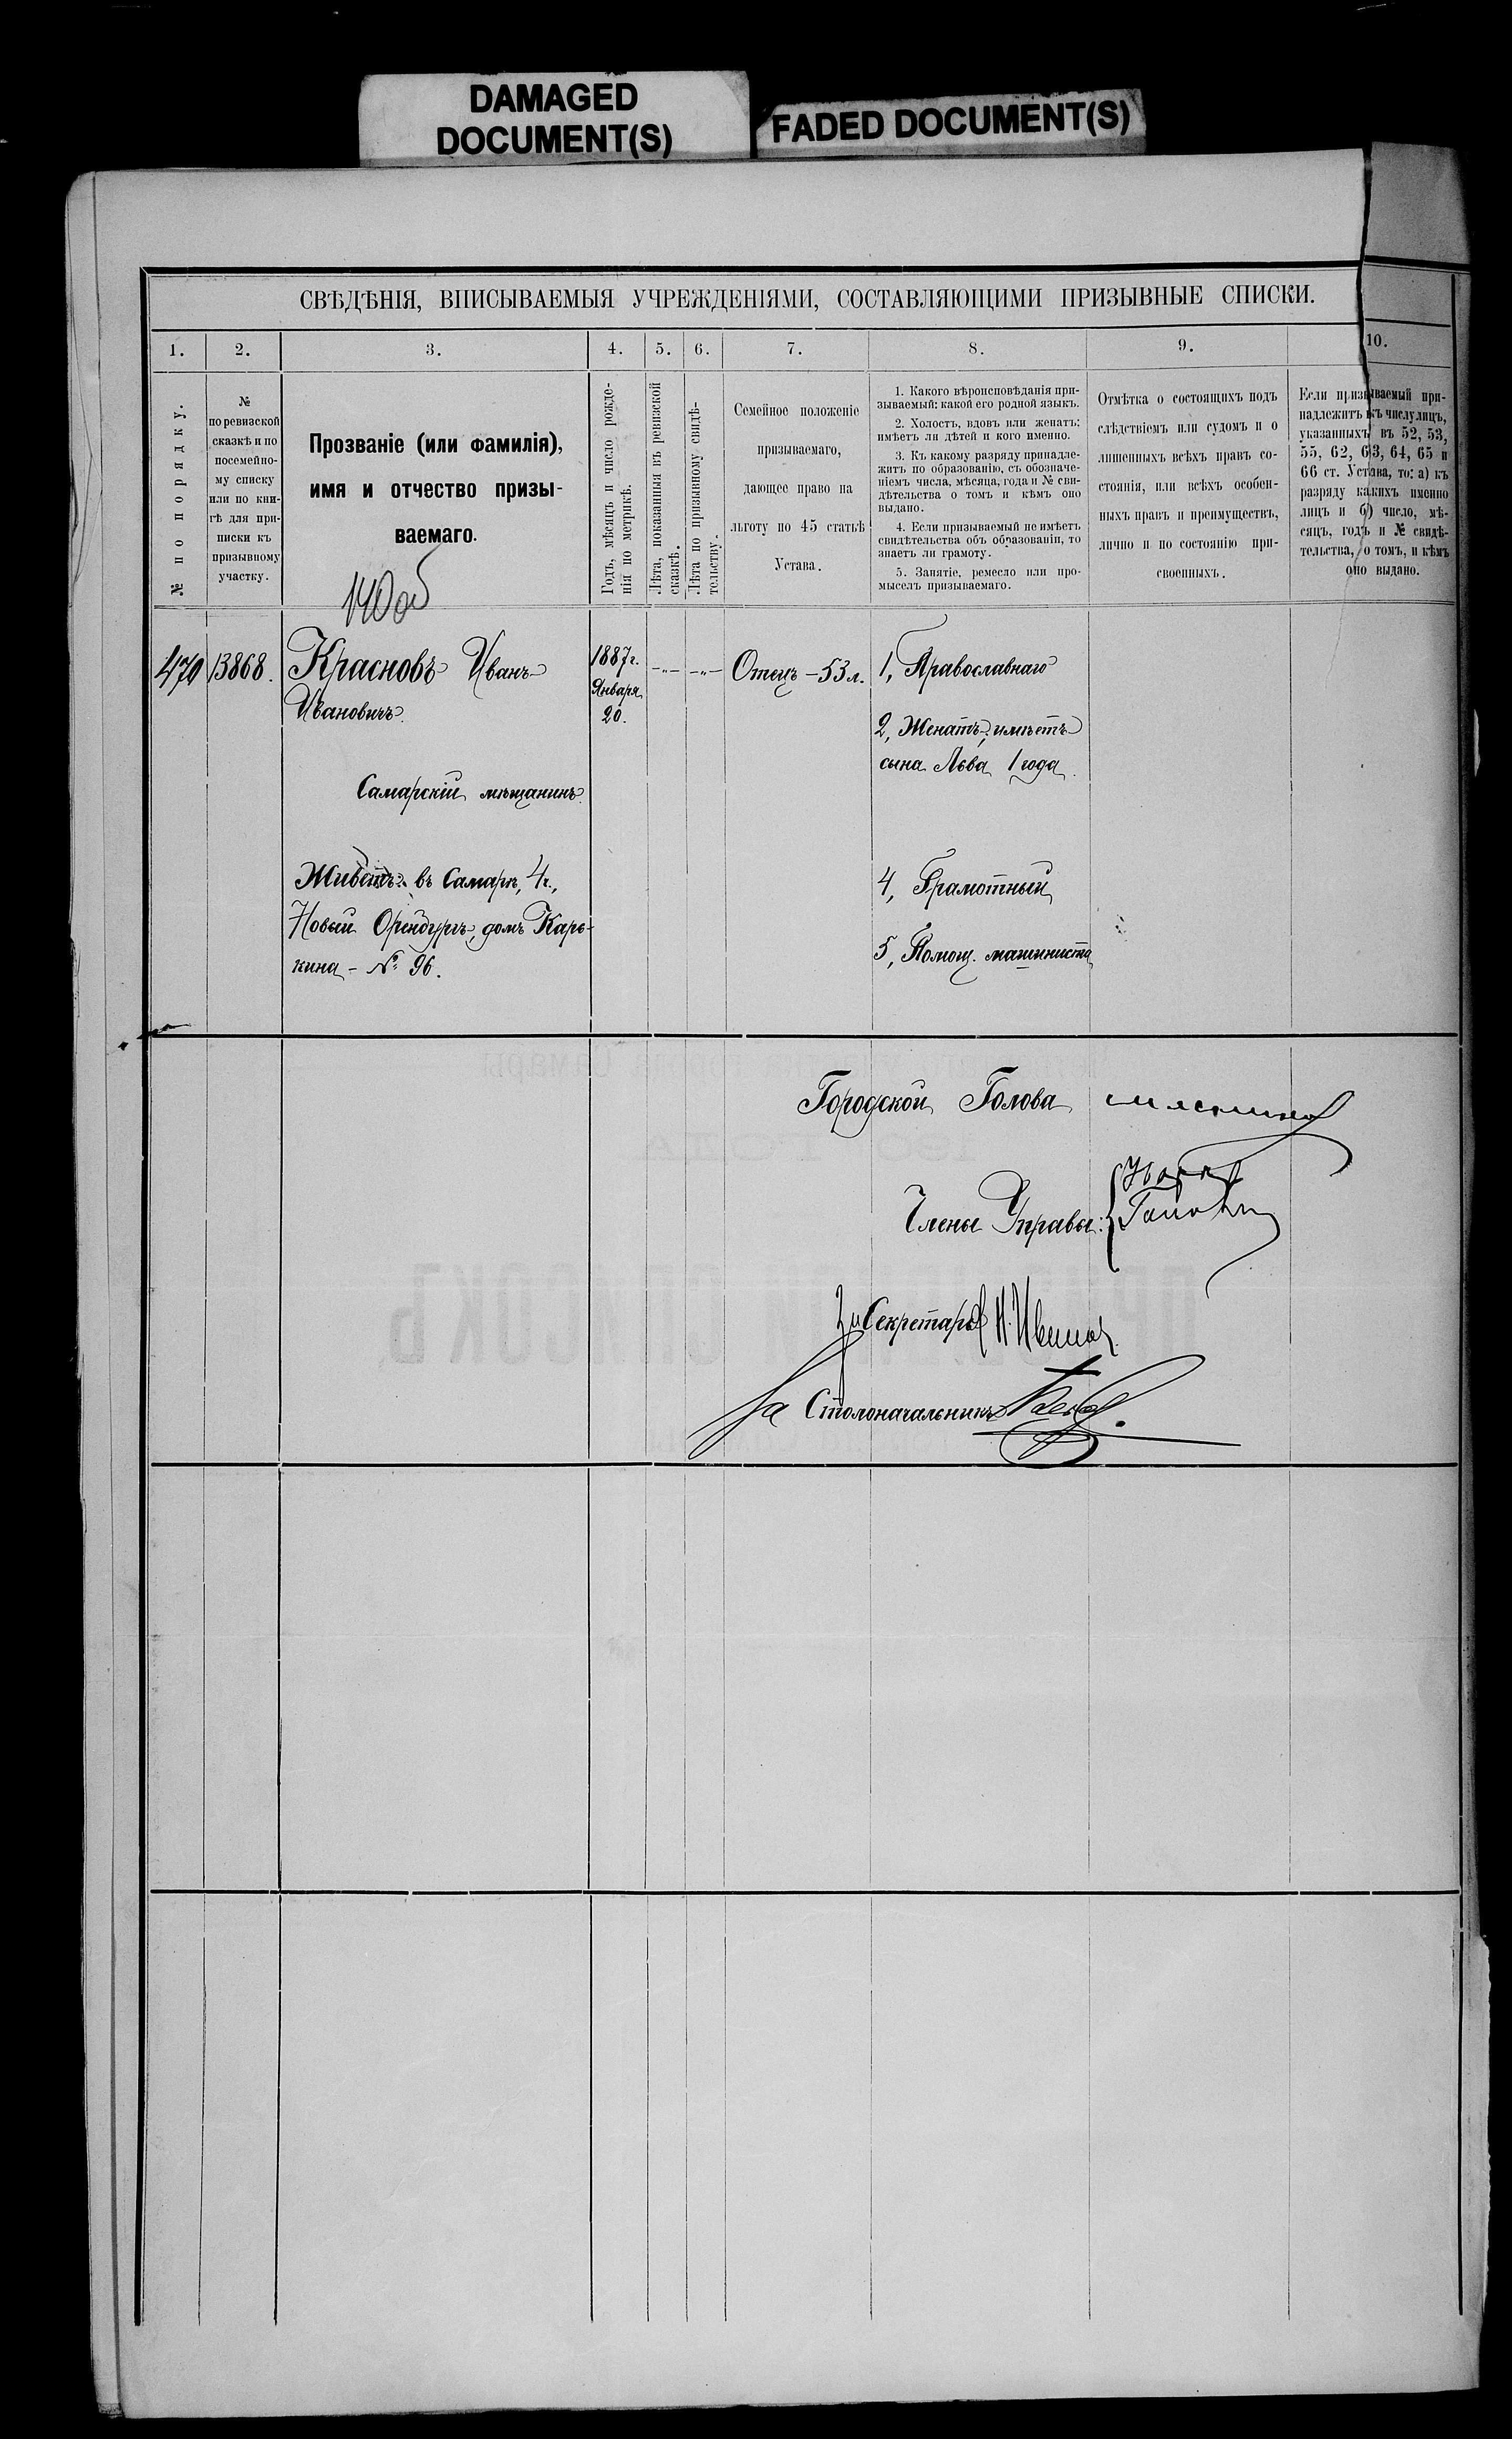 DAMAGED
DOCUMENT(S)
FADED DOCUMENT(S)
СВѢДѢНІЯ, ВПИСЫВАЕМЫЯ УЧРЕЖДЕНІЯМИ, СОСТАВЛЯЮЩИМИ ПРИЗЫВНЫЕ СПИСКИ.
1. 2. 3. 4. 5. 6. 7. 8. 9. 10.
№ по порядку.
№
по ревизской
сказкѣ и по
посемейно-
му списку
или по кни-
гѣ для при-
писки къ
призывному
участку.
Прозваніе (или фамилія),
имя и отчество призы-
ваемаго.
Годъ, мѣсяцъ и число рожде-
нія по метрикѣ.
Лѣта, показанныя въ ревизской
сказкѣ.
Лѣта по призывному свидѣ-
тельству.
Семейное положеніе
призываемаго,
дающее право на
льготу по 45 статьѣ
Устава.
1. Какого вѣроисповѣданія при-
зываемый; какой его родной языкъ.
2. Холостъ, вдовъ или женатъ;
имѣетъ ли дѣтей и кого именно.
3. Къ какому разряду принадле-
житъ по образованію, съ обозначе-
ніемъ числа, мѣсяца, года и № сви-
дѣтельства о томъ и кѣмъ оно
выдано.
4. Если призываемый не имѣетъ
свидѣтельства объ образованіи, то
знаетъ ли грамоту.
5. Занятіе, ремесло или про-
мыселъ призываемаго.
Отмѣтка о состоящихъ подъ
слѣдствіемъ или судомъ и о
лишенныхъ всѣхъ правъ со-
стоянія, или всѣхъ особен-
ныхъ правъ и преимуществъ,
лично и по состоянію при-
своенныхъ.
Если призываемый при-
надлежитъ къ числу лицъ,
указанныхъ въ 52, 53,
55, 62, 63, 64, 65 и
66 ст. Устава, то: а) къ
разряду какихъ именно
лицъ и б) число, мѣ-
сяцъ, годъ и № свидѣ-
тельства, о томъ, и кѣмъ
оно выдано.
470 13868. Красновъ Иванъ
Ивановичъ.
Самарскій мѣщанинъ.
Живетъ: въ Самарѣ, 4 ч.,
Новый Оренбургъ, домъ Карь-
кина - № 96.
1887 г.
Января
20.
-„- -„-
Отецъ - 53 л.
1, Православнаго
2, Женатъ; имѣетъ
сына Льва 1 года.
4, Грамотный
5, Помощ. машиниста
Городской Голова
Члены Управы:
За Секретаря
За Столоначальника